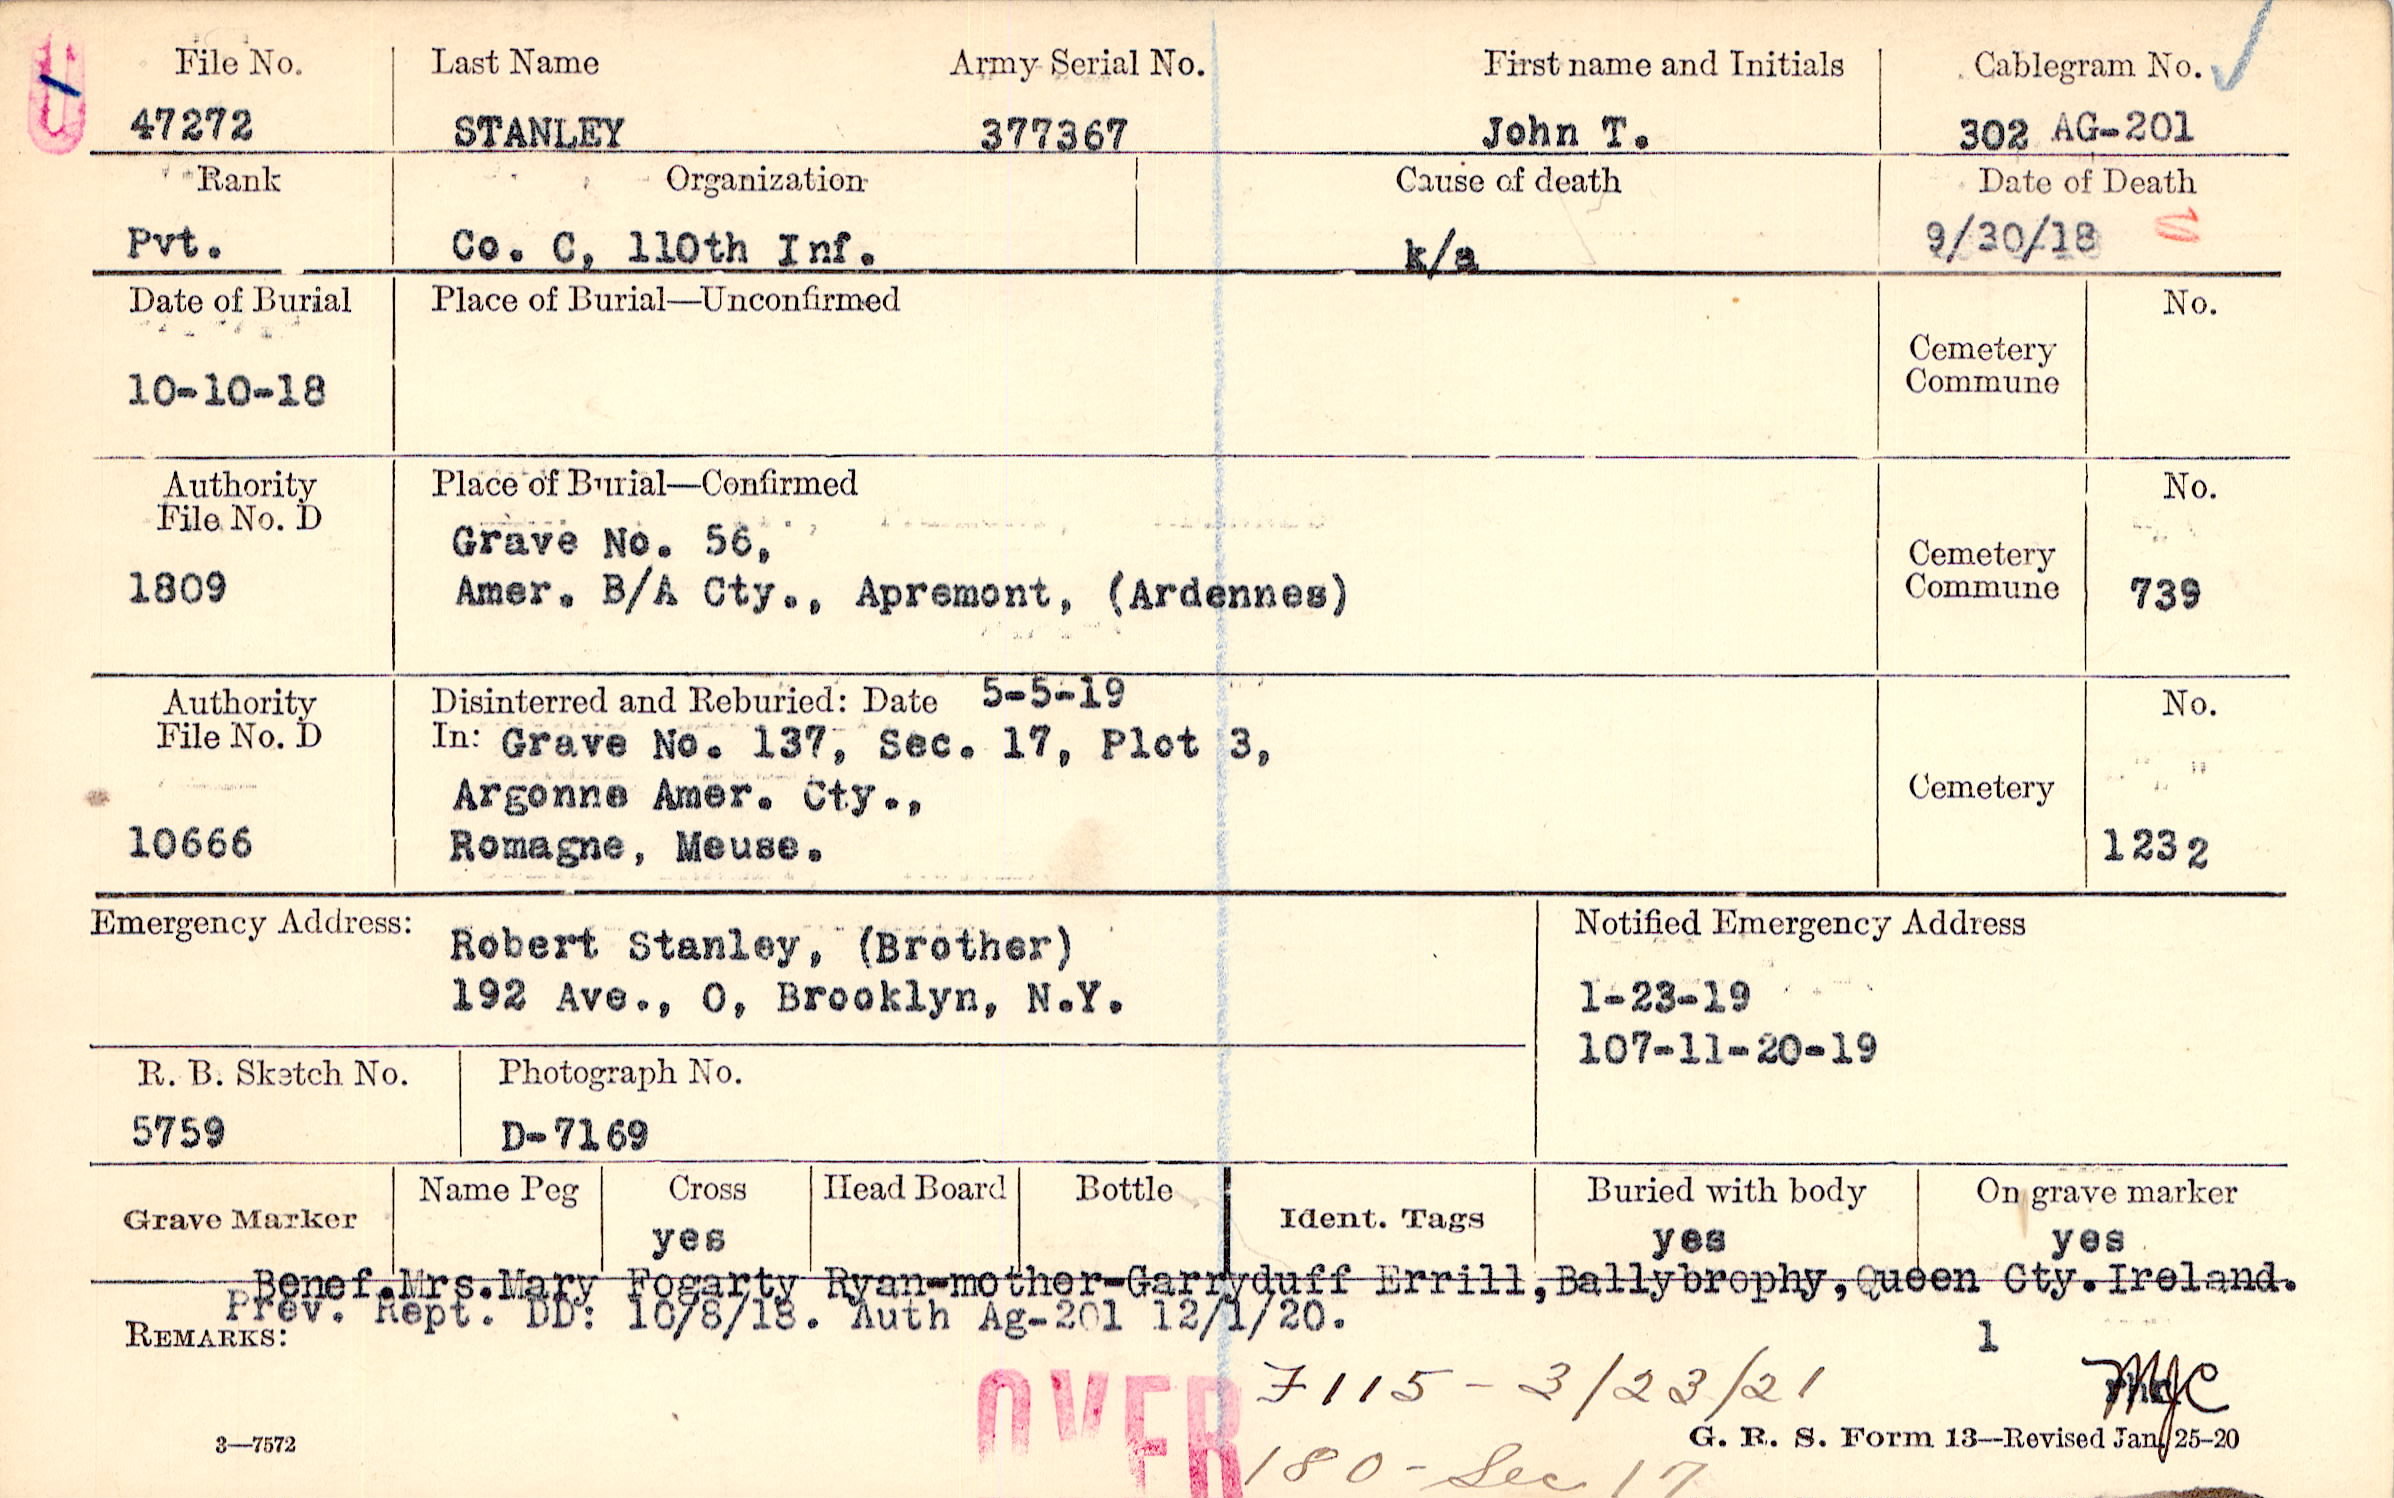 File No. Last Name Army Serial No. First name and Initials Cablegram No.
47272 STANLEY 377367 John T. 302 AG-201
Rank Organization Cause of death Date of Death
Pvt. Co. C, 110th Inf. k/a 9/30/18
Date of Burial Place of Burial—Unconfirmed No.
10-10-18 Cemetery
Commune
Authority Place of Burial—Confirmed No.
File No. D
Grave No. 56,
1809 Amer. B/A Cty., Apremont, (Ardennes) Cemetery
Commune 739
Authority Disinterred and Reburied: Date 5-5-19 No.
File No. D In: Grave No. 137, Sec. 17, Plot 3,
Argonne Amer. Cty., Cemetery
10666 Romagne, Meuse. 1232
Emergency Address: Notified Emergency Address
Robert Stanley, (Brother)
192 Ave., O, Brooklyn, N.Y. 1-23-19
107-11-20-19
R. B. Sketch No. Photograph No.
5759 D-7169
Grave Marker Name Peg Cross Head Board Bottle Ident. Tags Buried with body On grave marker
yes yes yes
Benef.Mrs.Mary Fogarty Ryan-mother-Garryduff Errill,Ballybrophy,Queen Cty.Ireland.
Prev. Rept. DD: 10/8/18. Auth Ag-201 12/1/20.
REMARKS: 1
OVER
F115 - 3/23/21
MJC
3—7572 G. R. S. Form 13—Revised Jan. 25-20
180 - Sec 17